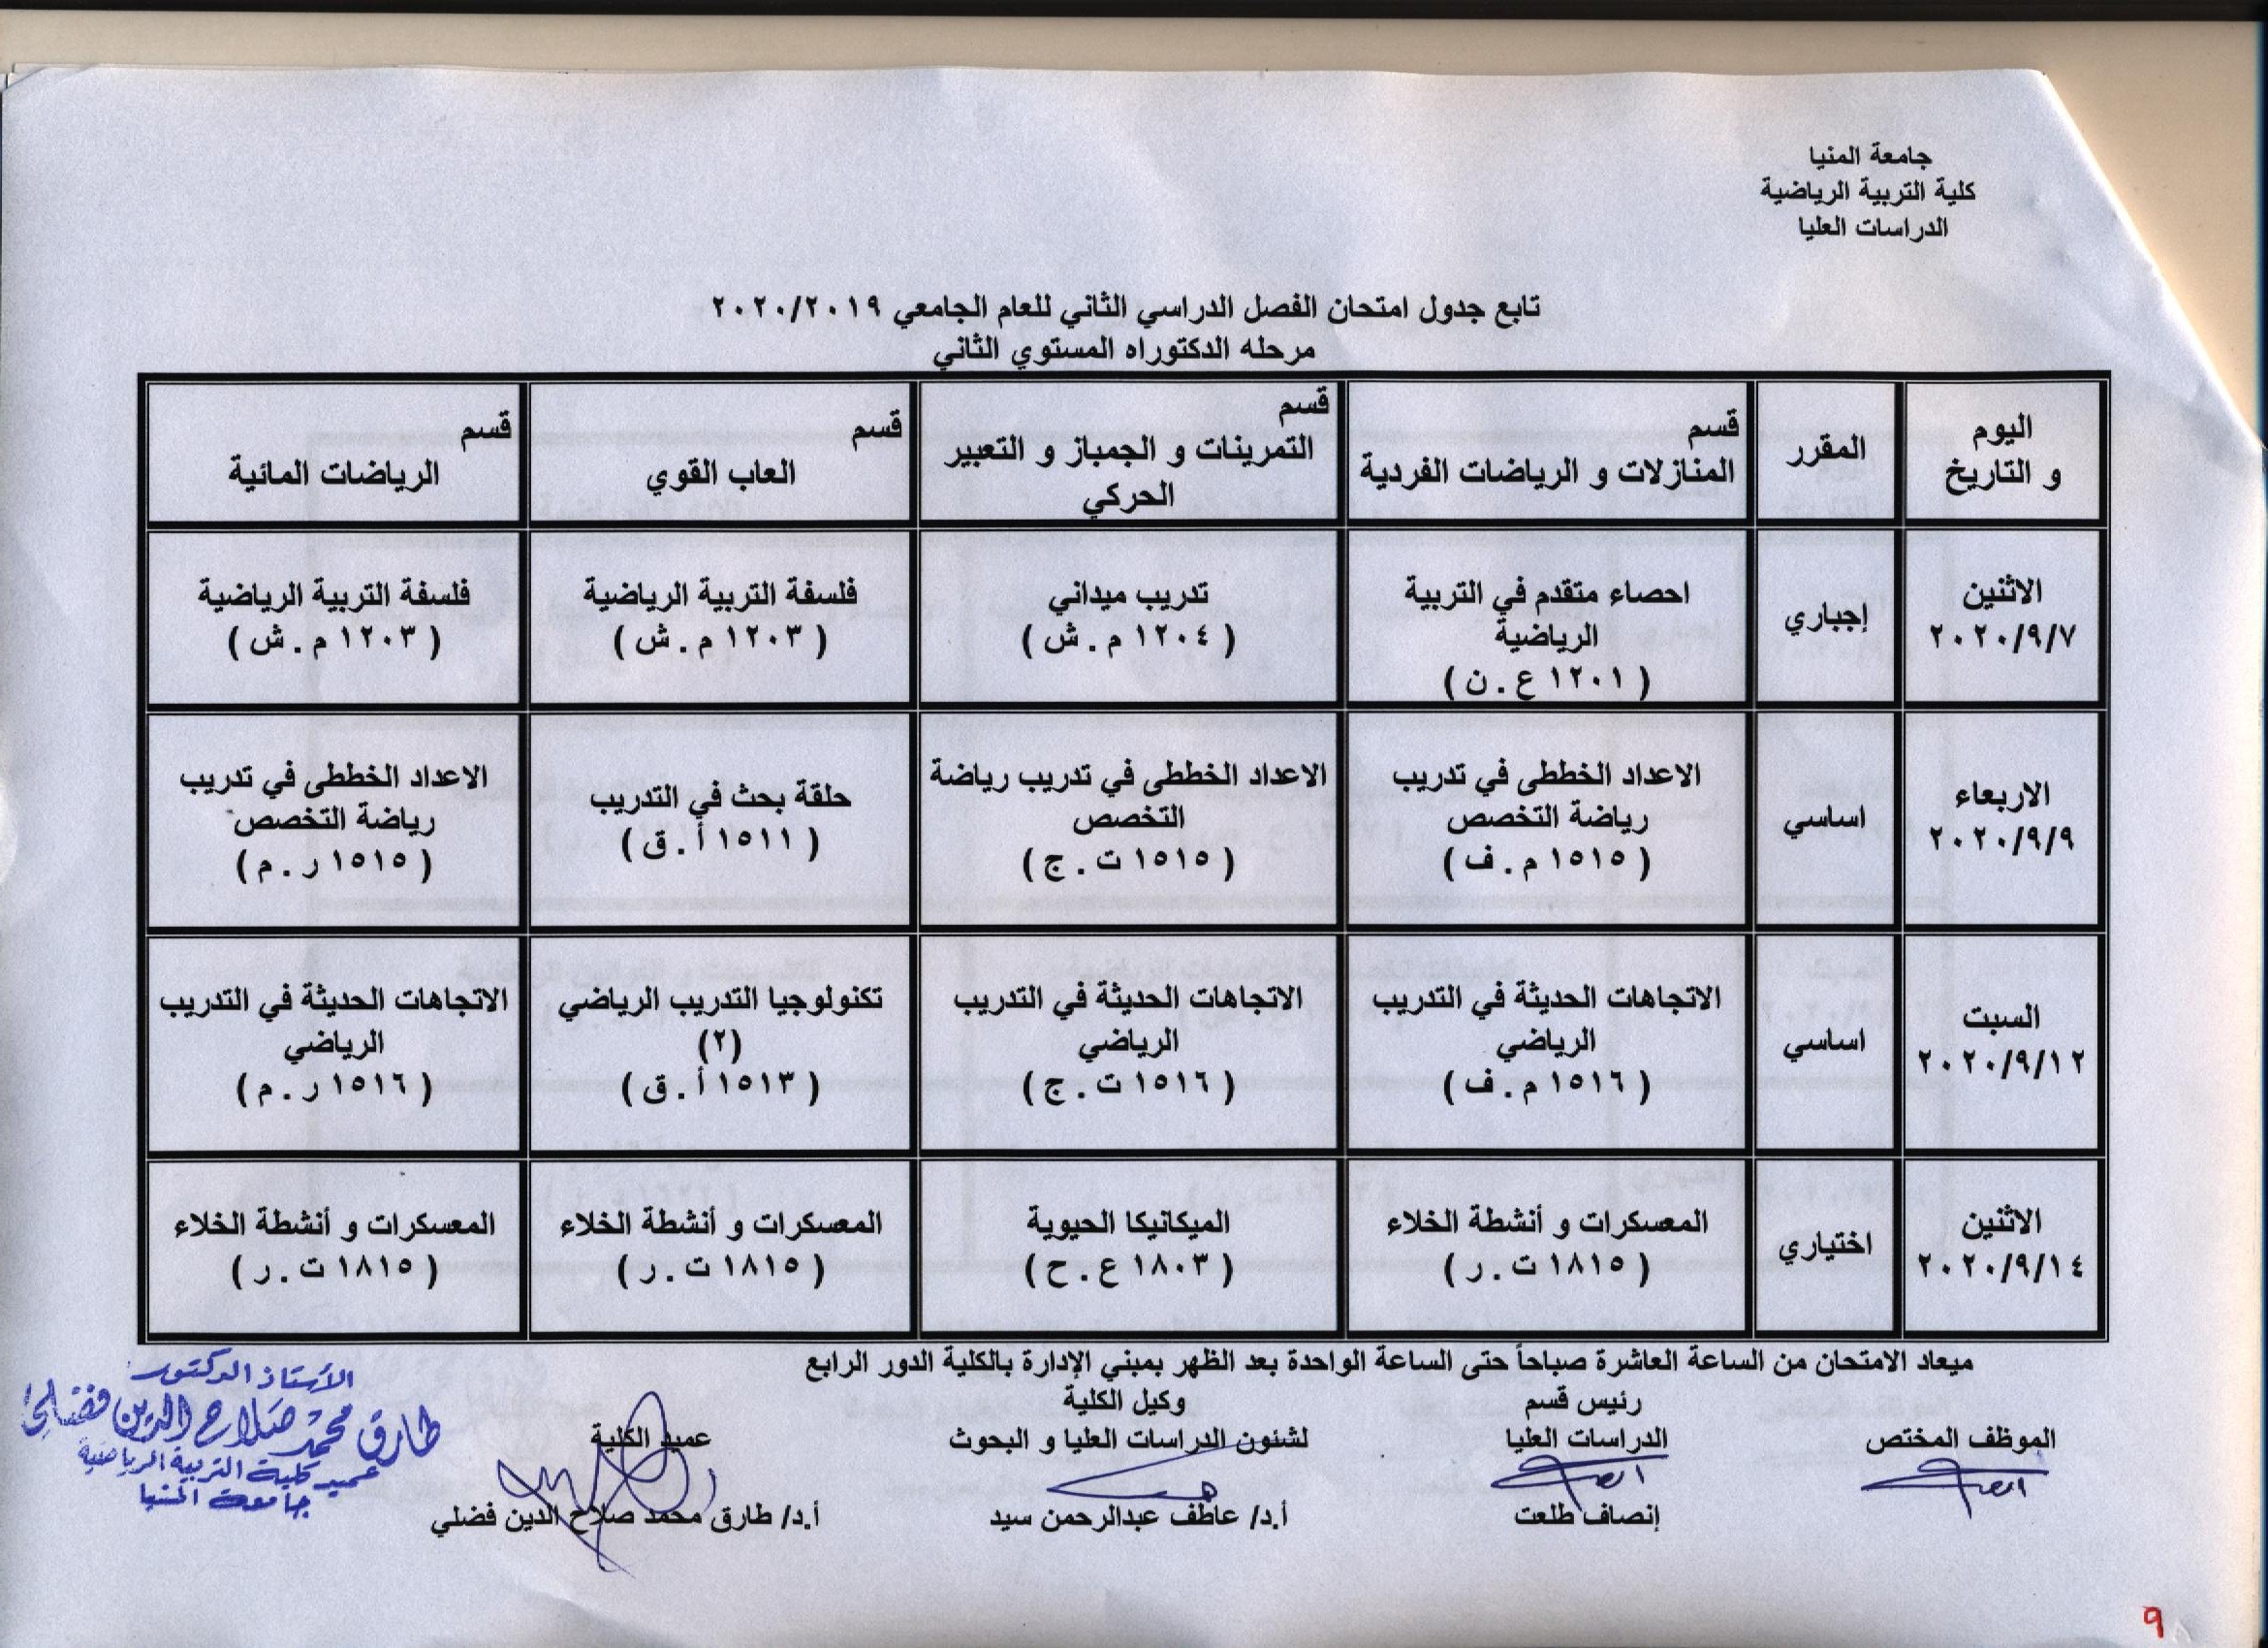 جامعة المنيا
كلية التربية الرياضية
الدراسات العليا
تابع جدول امتحان الفصل الدراسي الثاني للعام الجامعي ٢٠٢٠/٢٠١٩
مرحله الدكتوراه المستوي الثاني
اليوم
و التاريخ
المقرر
قسم
المنازلات و الرياضات الفردية
قسم
التمرينات و الجمباز و التعبير
الحركي
قسم
العاب القوي
قسم
الرياضات المائية
الاثنين
٢٠٢٠/٩/٧
إجباري
احصاء متقدم في التربية
الرياضية
( ١٢٠١ ع . ن )
تدريب ميداني
( ١٢٠٤ م . ش )
فلسفة التربية الرياضية
( ١٢٠٣ م . ش )
فلسفة التربية الرياضية
( ١٢٠٣ م . ش )
الاربعاء
٢٠٢٠/٩/٩
اساسي
الاعداد الخططى في تدريب
رياضة التخصص
( ١٥١٥ م . ف )
الاعداد الخططى في تدريب رياضة
التخصص
( ١٥١٥ ت . ج )
حلقة بحث في التدريب
( ١٥١١ أ . ق )
الاعداد الخططى في تدريب
رياضة التخصص
( ١٥١٥ ر . م )
السبت
٢٠٢٠/٩/١٢
اساسي
الاتجاهات الحديثة في التدريب
الرياضي
( ١٥١٦ م . ف )
الاتجاهات الحديثة في التدريب
الرياضي
( ١٥١٦ ت . ج )
تكنولوجيا التدريب الرياضي
(٢)
( ١٥١٣ أ . ق )
الاتجاهات الحديثة في التدريب
الرياضي
( ١٥١٦ ر . م )
الاثنين
٢٠٢٠/٩/١٤
اختياري
المعسكرات و أنشطة الخلاء
( ١٨١٥ ت . ر )
الميكانيكا الحيوية
( ١٨٠٣ ع . ح )
المعسكرات و أنشطة الخلاء
( ١٨١٥ ت . ر )
المعسكرات و أنشطة الخلاء
( ١٨١٥ ت . ر )
ميعاد الامتحان من الساعة العاشرة صباحاً حتى الساعة الواحدة بعد الظهر بمبني الإدارة بالكلية الدور الرابع
الموظف المختص
رئيس قسم
الدراسات العليا
إنصاف طلعت
وكيل الكلية
لشئون الدراسات العليا و البحوث
أ.د/ عاطف عبدالرحمن سيد
عميد الكلية
أ.د/ طارق محمد صلاح الدين فضلي
الأستاذ الدكتور
طارق محمد صلاح الدين فضلي
عميد كلية التربية الرياضية
جامعة المنيا
٩